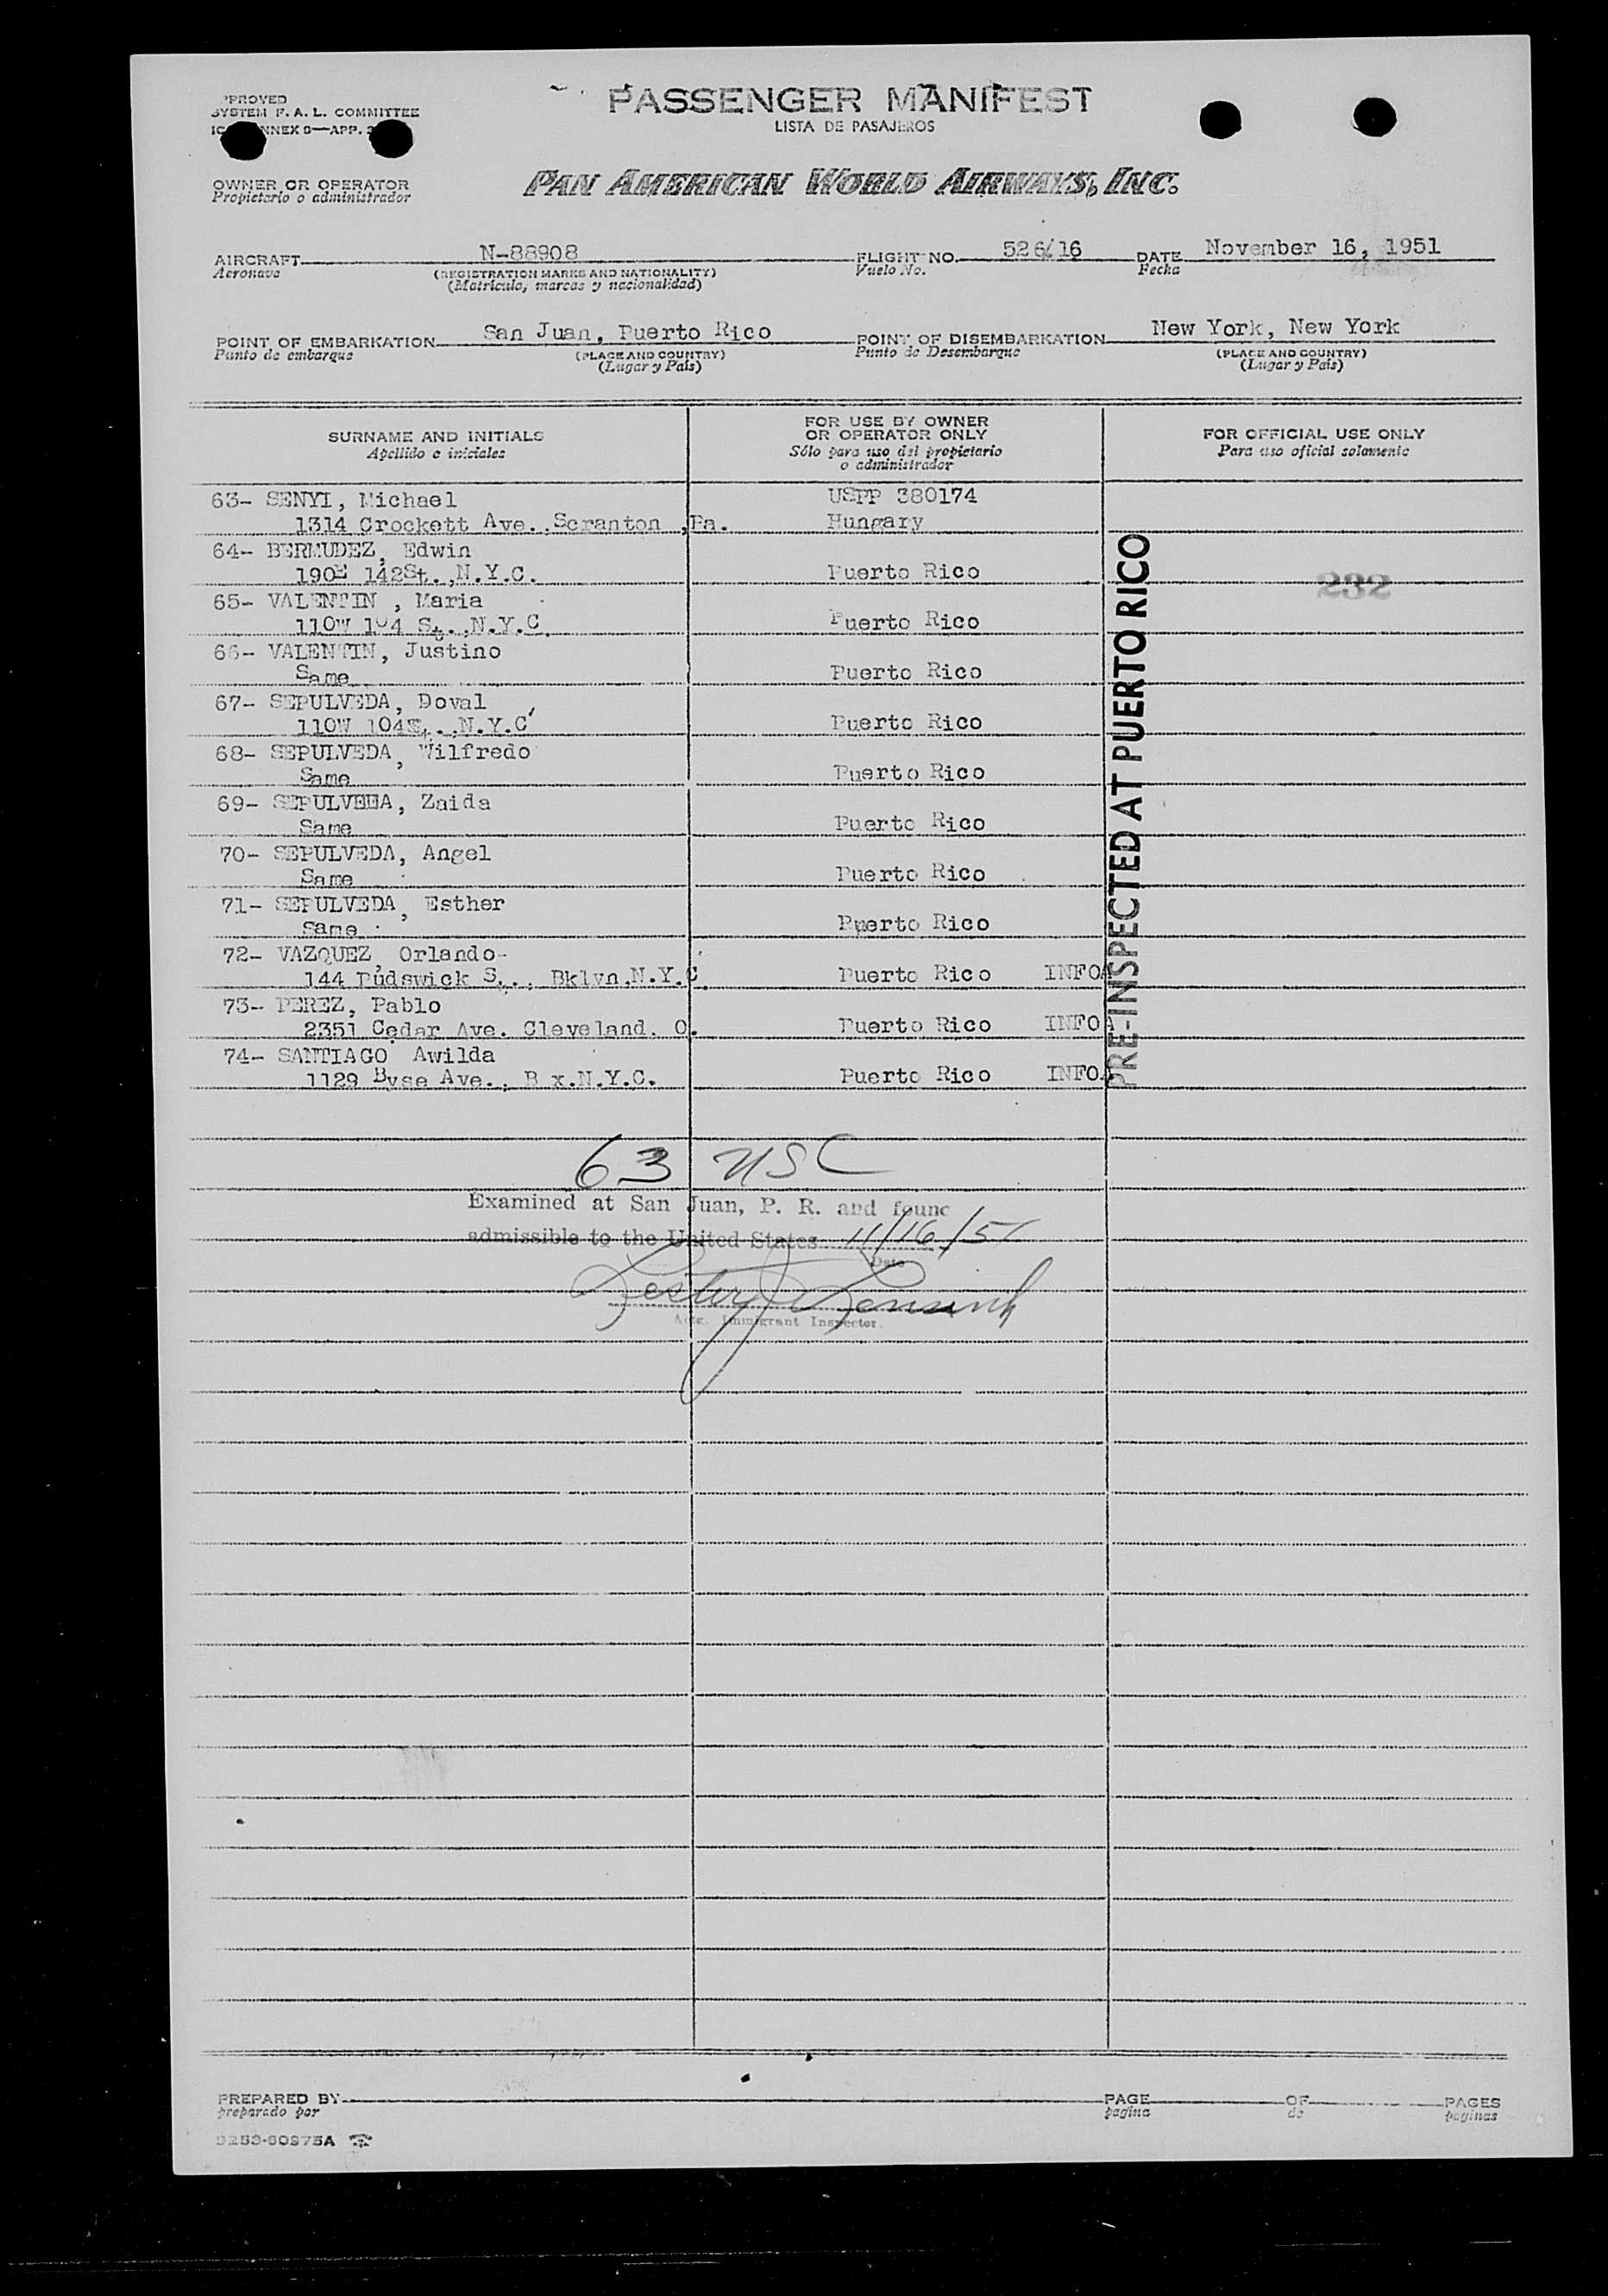 PPROVED
SYSTEM F. A. L. COMMITTEE
NNEX 9—APP.
PASSENGER MANIFEST
LISTA DE PASAJEROS
OWNER OR OPERATOR
Propietario o administrador
PAN AMERICAN WORLD AIRWAYS, INC.
AIRCRAFT N-88908 FLIGHT NO. 526/16 DATE November 16, 1951
Aeronave (REGISTRATION MARKS AND NATIONALITY) Vuelo No. Fecha
(Matrícula, marcas y nacionalidad)
POINT OF EMBARKATION San Juan, Puerto Rico POINT OF DISEMBARKATION New York, New York
Punto de embarque (PLACE AND COUNTRY) Punto de Desembarque (PLACE AND COUNTRY)
(Lugar y País) (Lugar y País)
SURNAME AND INITIALS
Apellido e iniciales
FOR USE BY OWNER
OR OPERATOR ONLY
Sólo para uso del propietario
o administrador
FOR OFFICIAL USE ONLY
Para uso oficial solamente
63- SENYI, Michael USPP 380174
1314 Crockett Ave., Scranton ,Pa. Hungary
64- BERMUDEZ, Edwin
190E 142St.,N.Y.C. Puerto Rico
232
65- VALENTIN , Maria
110W 104 St.,N.Y.C. Puerto Rico
66- VALENTIN, Justino
Same Puerto Rico
67- SEPULVEDA, Doval
110W 104St.,N.Y.C Puerto Rico
68- SEPULVEDA, Wilfredo
Same Puerto Rico
69- SEPULVEDA, Zaida
Same Puerto Rico
70- SEPULVEDA, Angel
Same Puerto Rico
71- SEPULVEDA, Esther
Same Puerto Rico
72- VAZQUEZ, Orlando
144 S., Bklyn,N.Y.C. Puerto Rico INFOA
73- PEREZ, Pablo
2351 Cedar Ave. Cleveland, O. Puerto Rico INFOA
74- SANTIAGO Awilda
1129 Byse Ave., B x.N.Y.C. Puerto Rico INFOA
PRE-INSPECTED AT PUERTO RICO
63 USC
Examined at San Juan, P. R. and found
admissible to the United States 11/16/51
Date
Actg. Immigrant Inspector.
PREPARED BY PAGE OF PAGES
preparado por pagina de paginas
9253-60975A